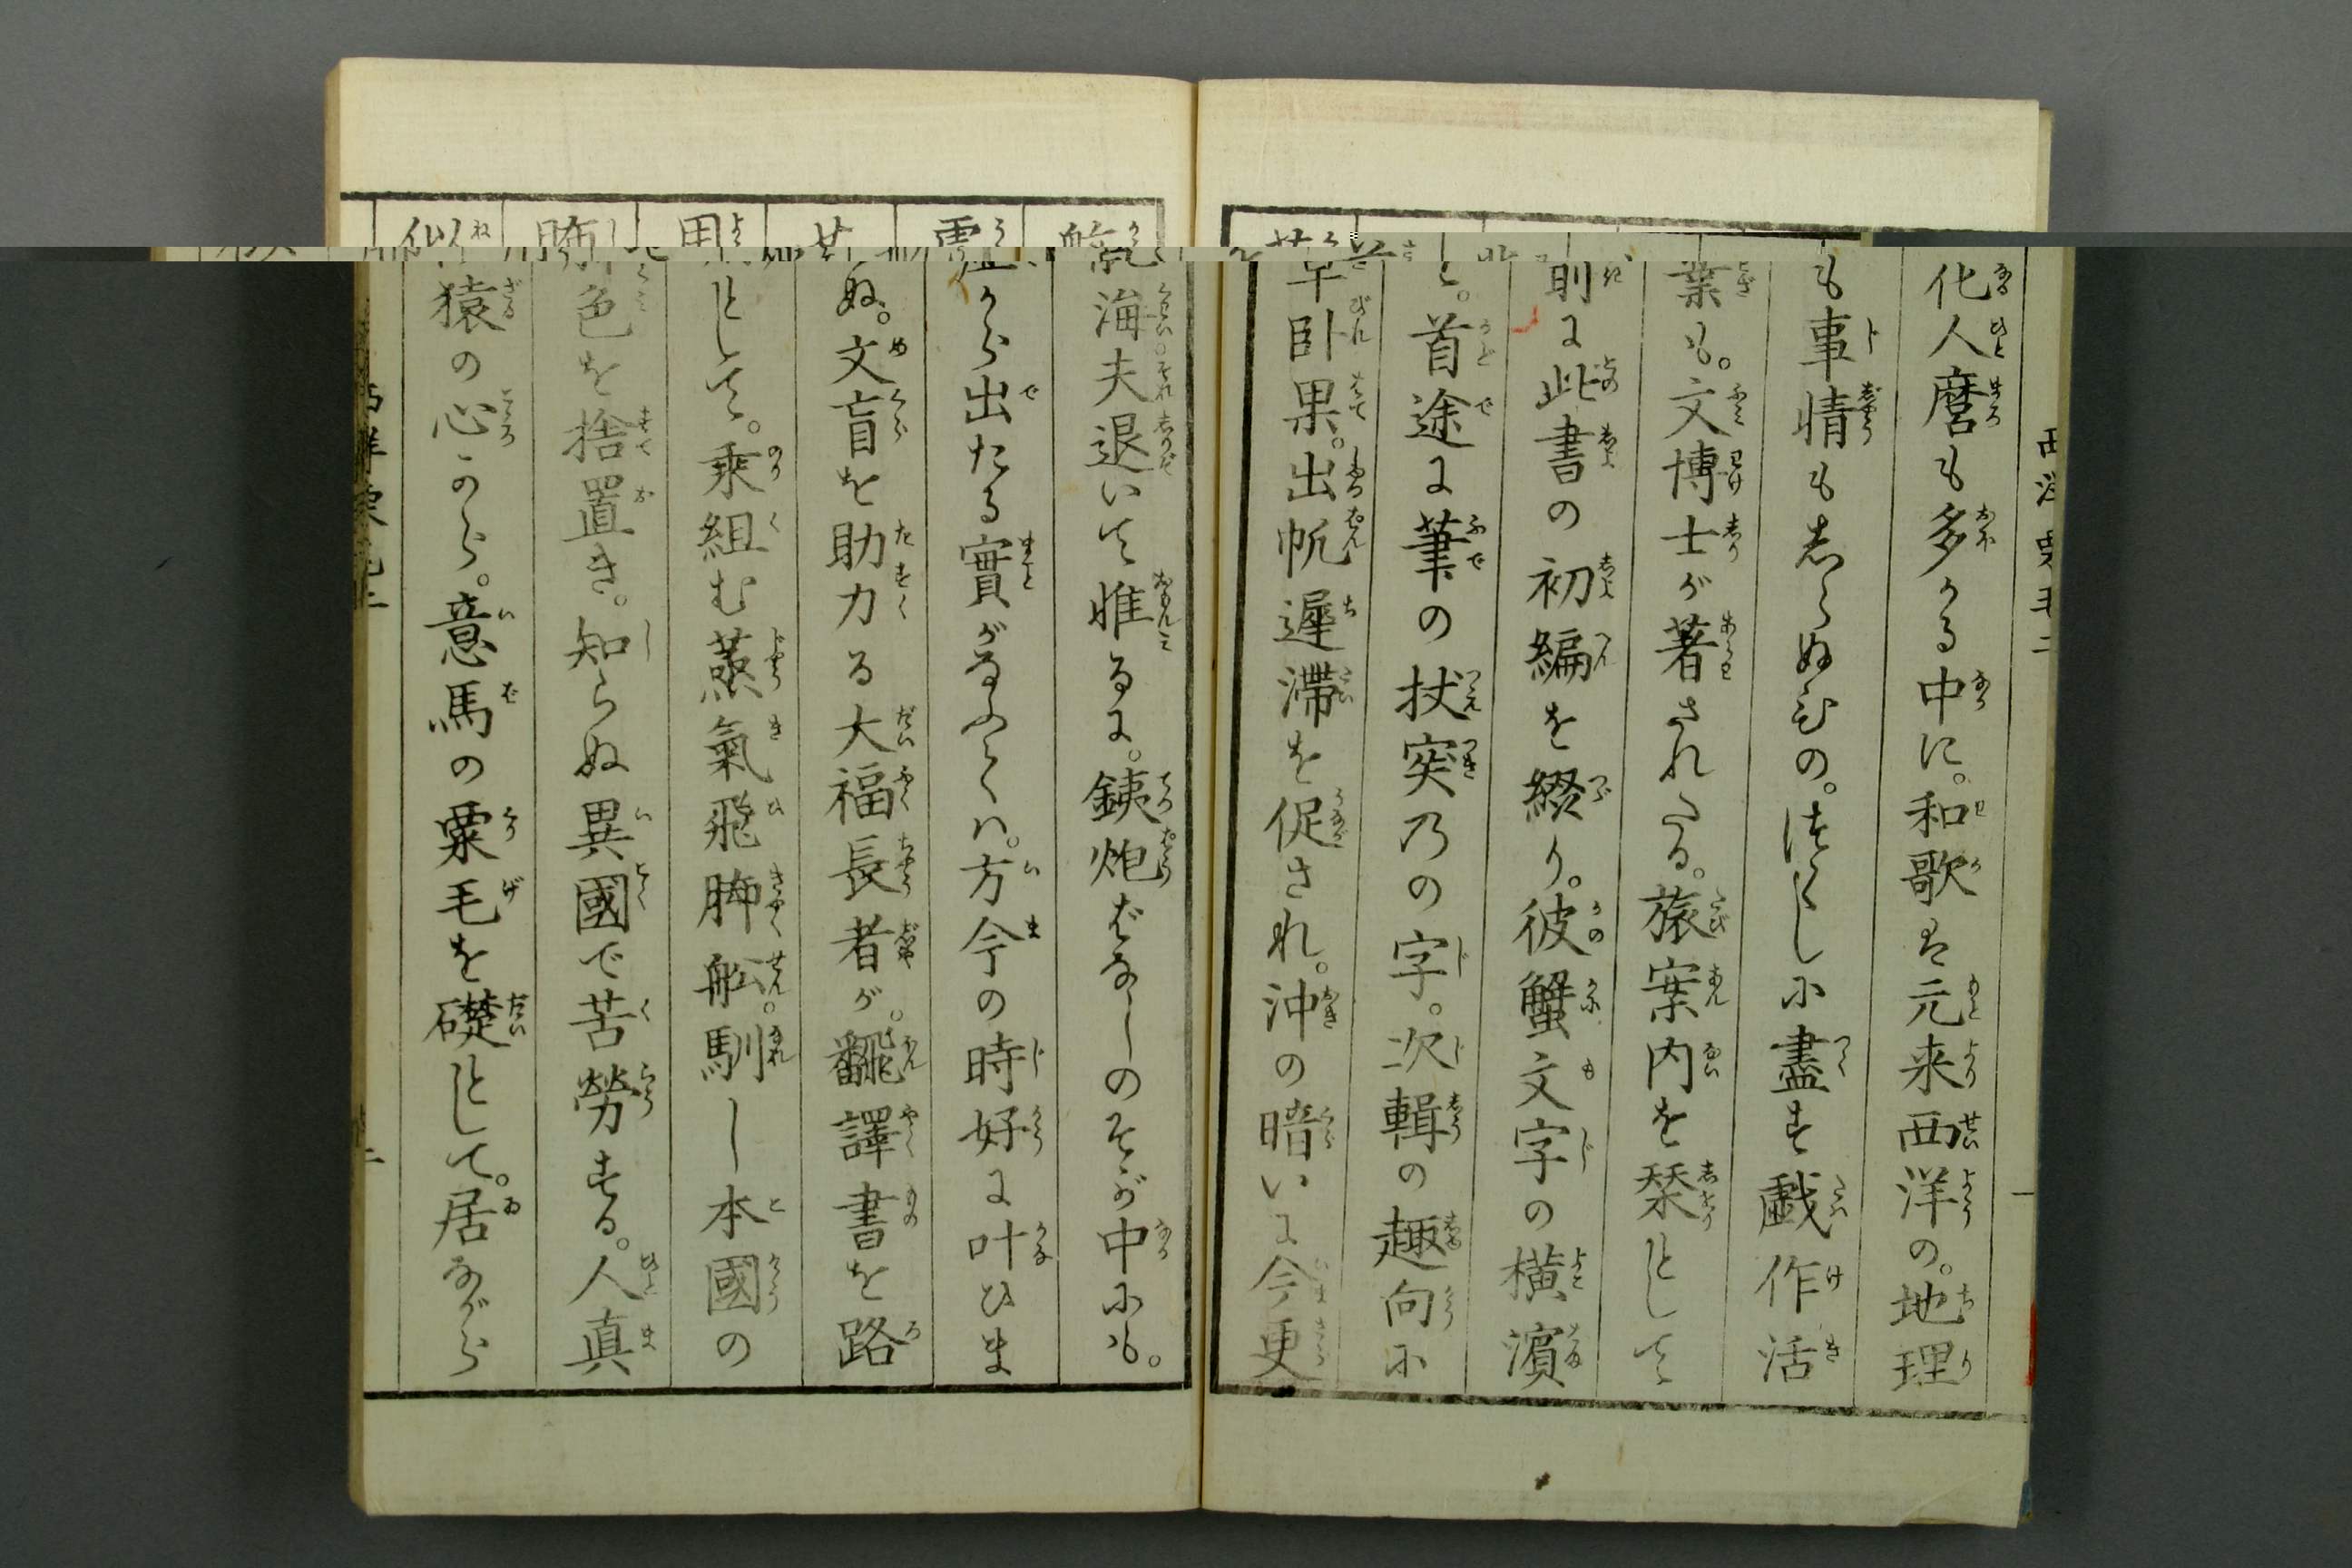 化人麿も多かる中に。和歌は元来西洋の。地理
も事情もしらぬひの。つくしに盡す戯作活
業も。文博士が著されたる。旅案内を栞として
則に此書の初編を綴り。彼蟹文字の横濱
と。首途に筆の杖突乃の字。次輯の趣向に
草臥果。出帆遅滞を促され。沖の暗いに今更
航海夫退いて惟るに。銕炮ばなしのそが中にも。
虚から出たる實がなふては。方今の時好に叶ひま
ぬ。文盲を助力る大福長者が。飜譯書を路
用として。乘組む蒸氣飛脚舩。馴し本國の
色を捨置き。知らぬ異國で苦勞する。人真
似猿の心から。意馬の粟毛を礎として。居ながら